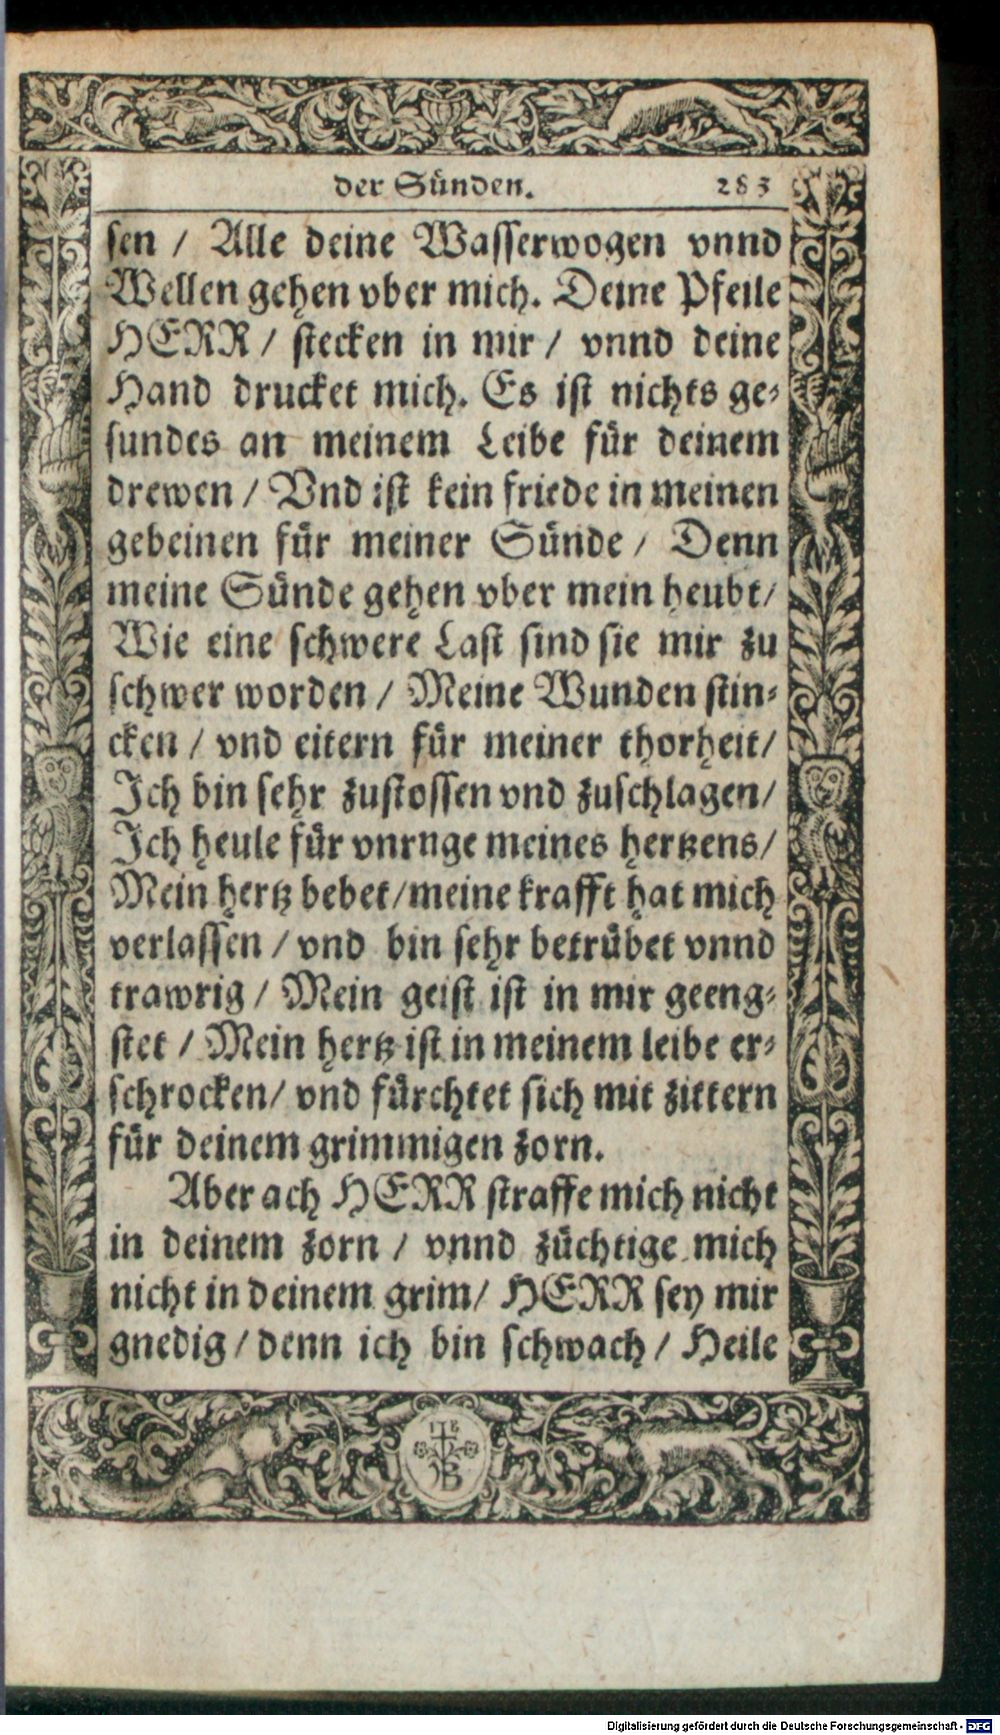 der Sünden. 283
sen / Alle deine Wasserwogen vnnd
Wellen gehen vber mich. Deine Pfeile
HERR / stecken in mir / vnnd deine
Hand drucket mich. Es ist nichts ge-
sundes an meinem Leibe für deinem
drewen / Vnd ist kein friede in meinen
gebeinen für meiner Sünde / Denn
meine Sünde gehen vber mein heubt/
Wie eine schwere Last sind sie mir zu
schwer worden / Meine Wunden stin-
cken / vnd eitern für meiner thorheit/
Ich bin sehr zustossen vnd zuschlagen/
Ich heule für vnruge meines hertzens/
Mein hertz bebet/meine krafft hat mich
verlassen / vnd bin sehr betrübet vnnd
trawrig / Mein geist ist in mir geeng-
stet / Mein hertz ist in meinem leibe er-
schrocken/ vnd fürchtet sich mit zittern
für deinem grimmigen zorn.
Aber ach HERR straffe mich nicht
in deinem zorn / vnnd züchtige mich
nicht in deinem grim/ HERR sey mir
gnedig/denn ich bin schwach / Heile
Digitalisierung gefördert durch die Deutsche Forschungsgemeinschaft - DFG